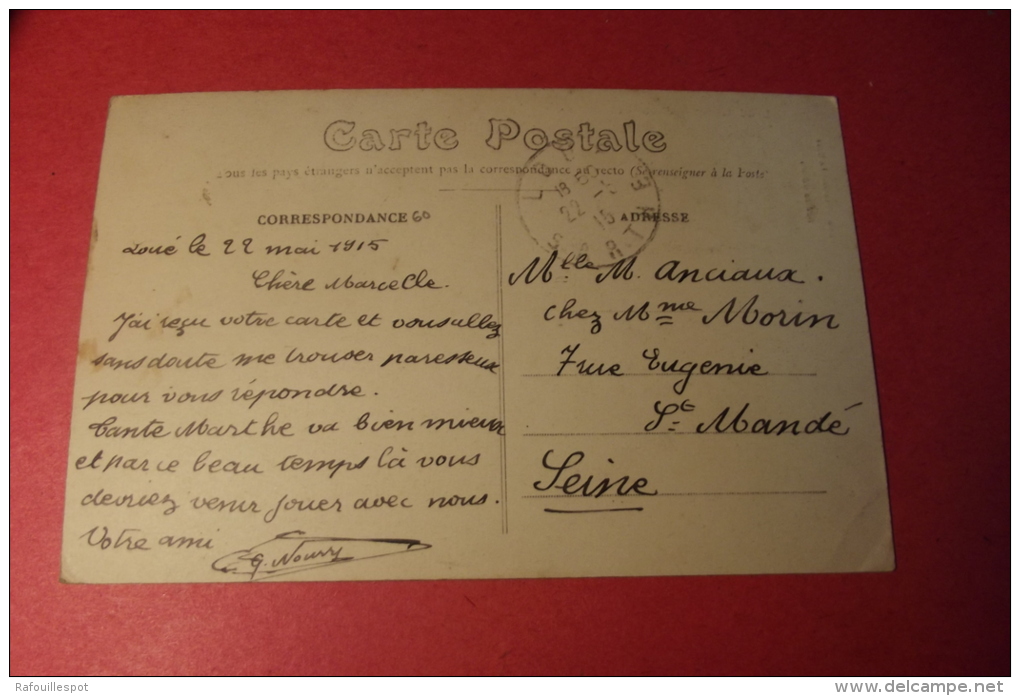 Carte Postale
Tous les pays étrangers n'acceptent pas la correspondance au recto (Se renseigner à la Poste)
CORRESPONDANCE 60
Loué le 22 mai 1915
Chère Marcelle.
J'ai reçu votre carte et vous allez
sans doute me trouver paresseux
pour vous répondre.
Tante Marthe va bien mieux
et par ce beau temps là vous
devriez venir jouer avec nous.
Votre ami
G. Nourry
ADRESSE
Mlle M. Anciaux.
chez Mme Morin
7 rue Eugenie
St Mandé
Seine
22 5 15
SARTHE
Rafouillespot
www.delcampe.net